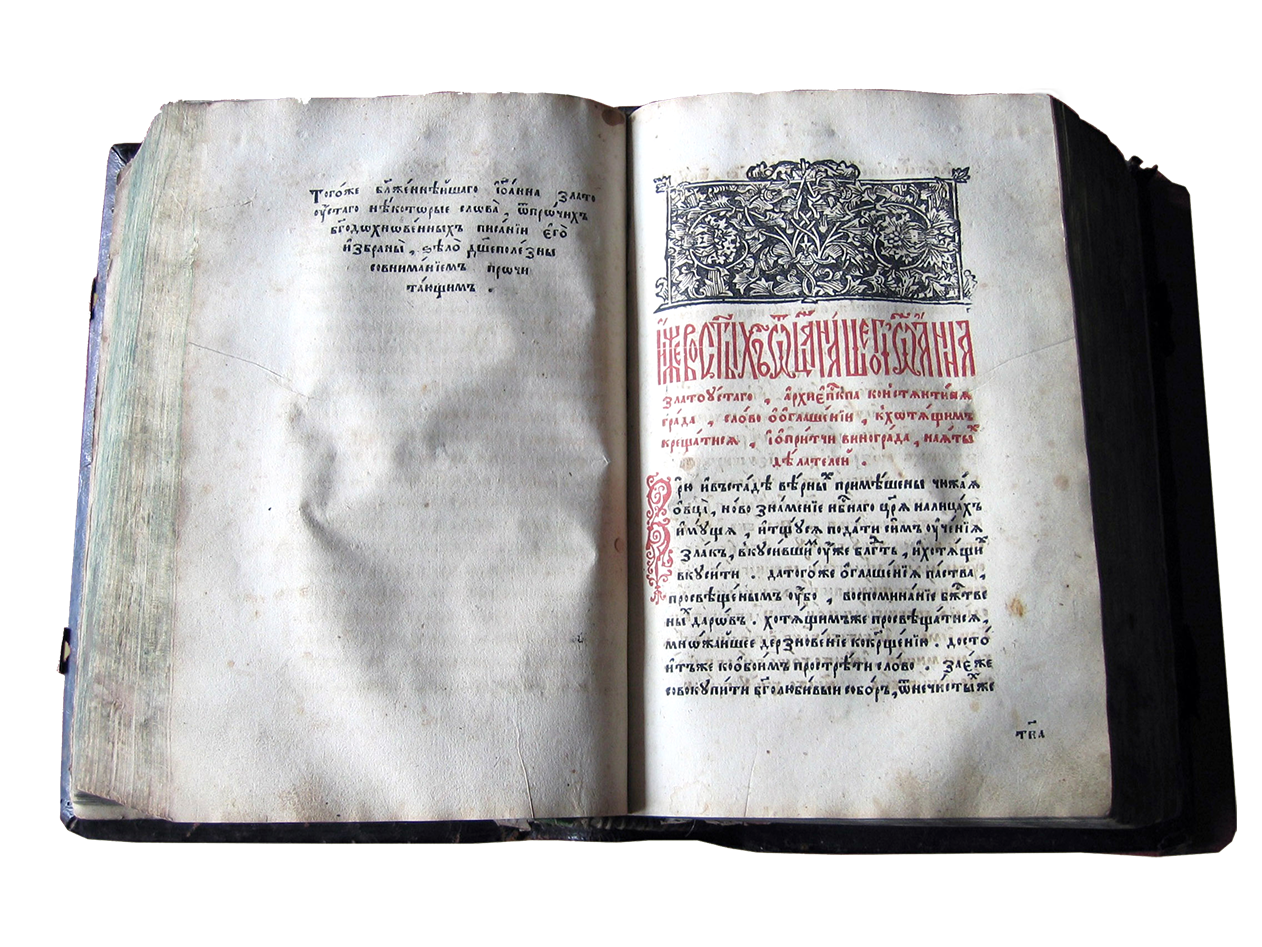 Тогѡ́же бл҃же́ннѣишаго іѡ҃а́нна злато
оу́стаго нѣ́которые словà, ѿпро́чихъ
бг҃одохнове́нныхъ писа́нїи є҆гѡ̀
и҆збраны̀, ѕѣлѡ̀ дш҃еполе́зны
совнима́нїемъ прочи
та́ющимъ .
И҆́же во ст҃ы́хъ ѿц҃а̀ на́шегѡ і҆ѡа́нна
златоу́стаго , а҆рхїеп҃кпа костѧнти́нѧ
гра́да , сло́во ѡ҆оглаше́нїи , кхотѧ́щимъ
крєща́тисѧ , іѡпри́тчи виногра́да , наѧ́ты́х
дѣ́лателей .
Зрю̀ и҆въста́дѣ вѣ́рных примѣ́шены чижа́ѧ
ѻ҆́вца̀ , но́во зна́менїе нбⷭ҇наго цр҃ѧ̀ налица́хъ
и҆мꙋ́щѧ , и҆тщꙋ́сѧ пода́ти си́мъ оу҆че́нїѧ
зла́къ , вкꙋси́вшим оу҆́же блгⷣть , и҆хотѧ́щи
вкꙋси́ти . датого́же ѻ҆глаше́нїѧ па́ства ,
просвѣще́нымъ оу҆́бо , воспомина́нїе бж҃тве
ны́х даро́въ . хотѧ́щимъже просвѣща́тисѧ ,
мно́жаишее дерзнове́нїе кокрⷭ҇ще́нїю . досто
и҆́тъже коѻбои́мъ простре́ти сло́во . зле́же
совокупи́ти бг҃олюби́выи собо́ръ , ѿнечи́стых же
тк҃а